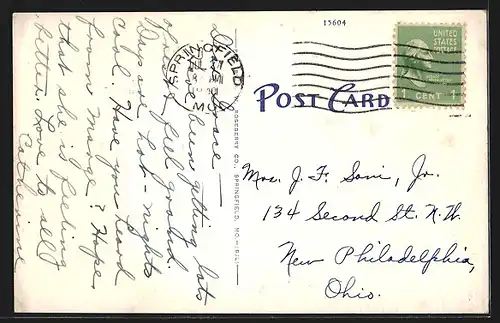 15604
UNITED
STATES
POSTAGE
1 CENT 1
SPRINGFIELD
MO.
POST CARD
Dear Grace —
Have been getting lots
of rest & feel grand.
Days are hot - nights
cool. Have you heard
from Marge? Hope
that she is feeling
better. Love to all
Catherine
CO., SPRINGFIELD, MO.
Mrs. J. F. Soni, Jr.
134 Second St. N.W.
New Philadelphia,
Ohio.